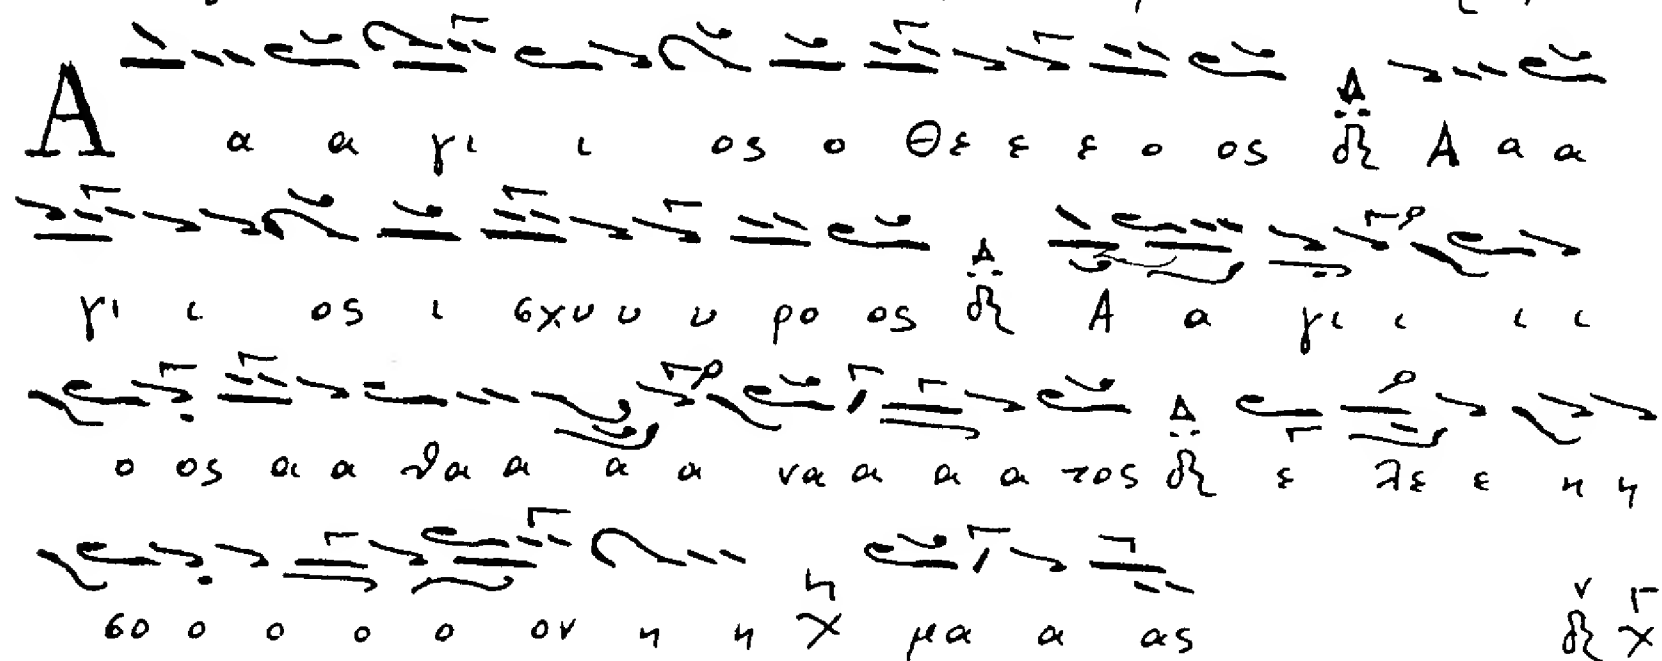 Α α α γι ι ος ο Θε ε ε ο ος Δ δι Α α α
γι ι ος ι σχυ υ υ ρο ος Δ δι Α α γι ι ι ι
ο ος α α θα α α α να α α α τος Δ δι ε λε ε η η
σο ο ο ο ο ον η η η χ μα α ας ν δι Γ χ